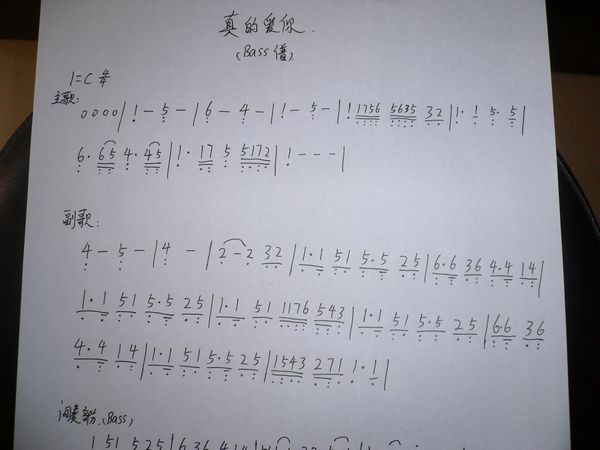 真的爱你.
(Bass 谱)
1=C 4/4
主歌:
0 0 0 0 | 1 - 5 - | 6 - 4 - | 1 - 5 - | 1 1756 5635 32 | 1· 1 5· 5 |
6· 65 4· 45 | 1· 17 5 5172 | 1 - - - |
副歌:
4 - 5 - | 4 - | 2 - 2 32 | 1·1 51 5·5 25 | 6·6 36 4·4 14 |
1·1 51 5·5 25 | 1·1 51 1176 543 | 1·1 51 5·5 25 | 66 36
4·4 14 | 1·1 51 5·5 25 | 1543 271 1·1 |
间奏部份.(Bass)
1 51 5 25 | 6 36 4 14 |